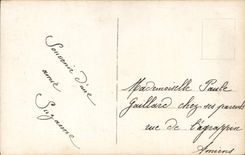 Souvenir d'une
amie
Suzanne
Mademoiselle Paule
Gaillard chez ses parents
rue de l'agrappin
Amiens